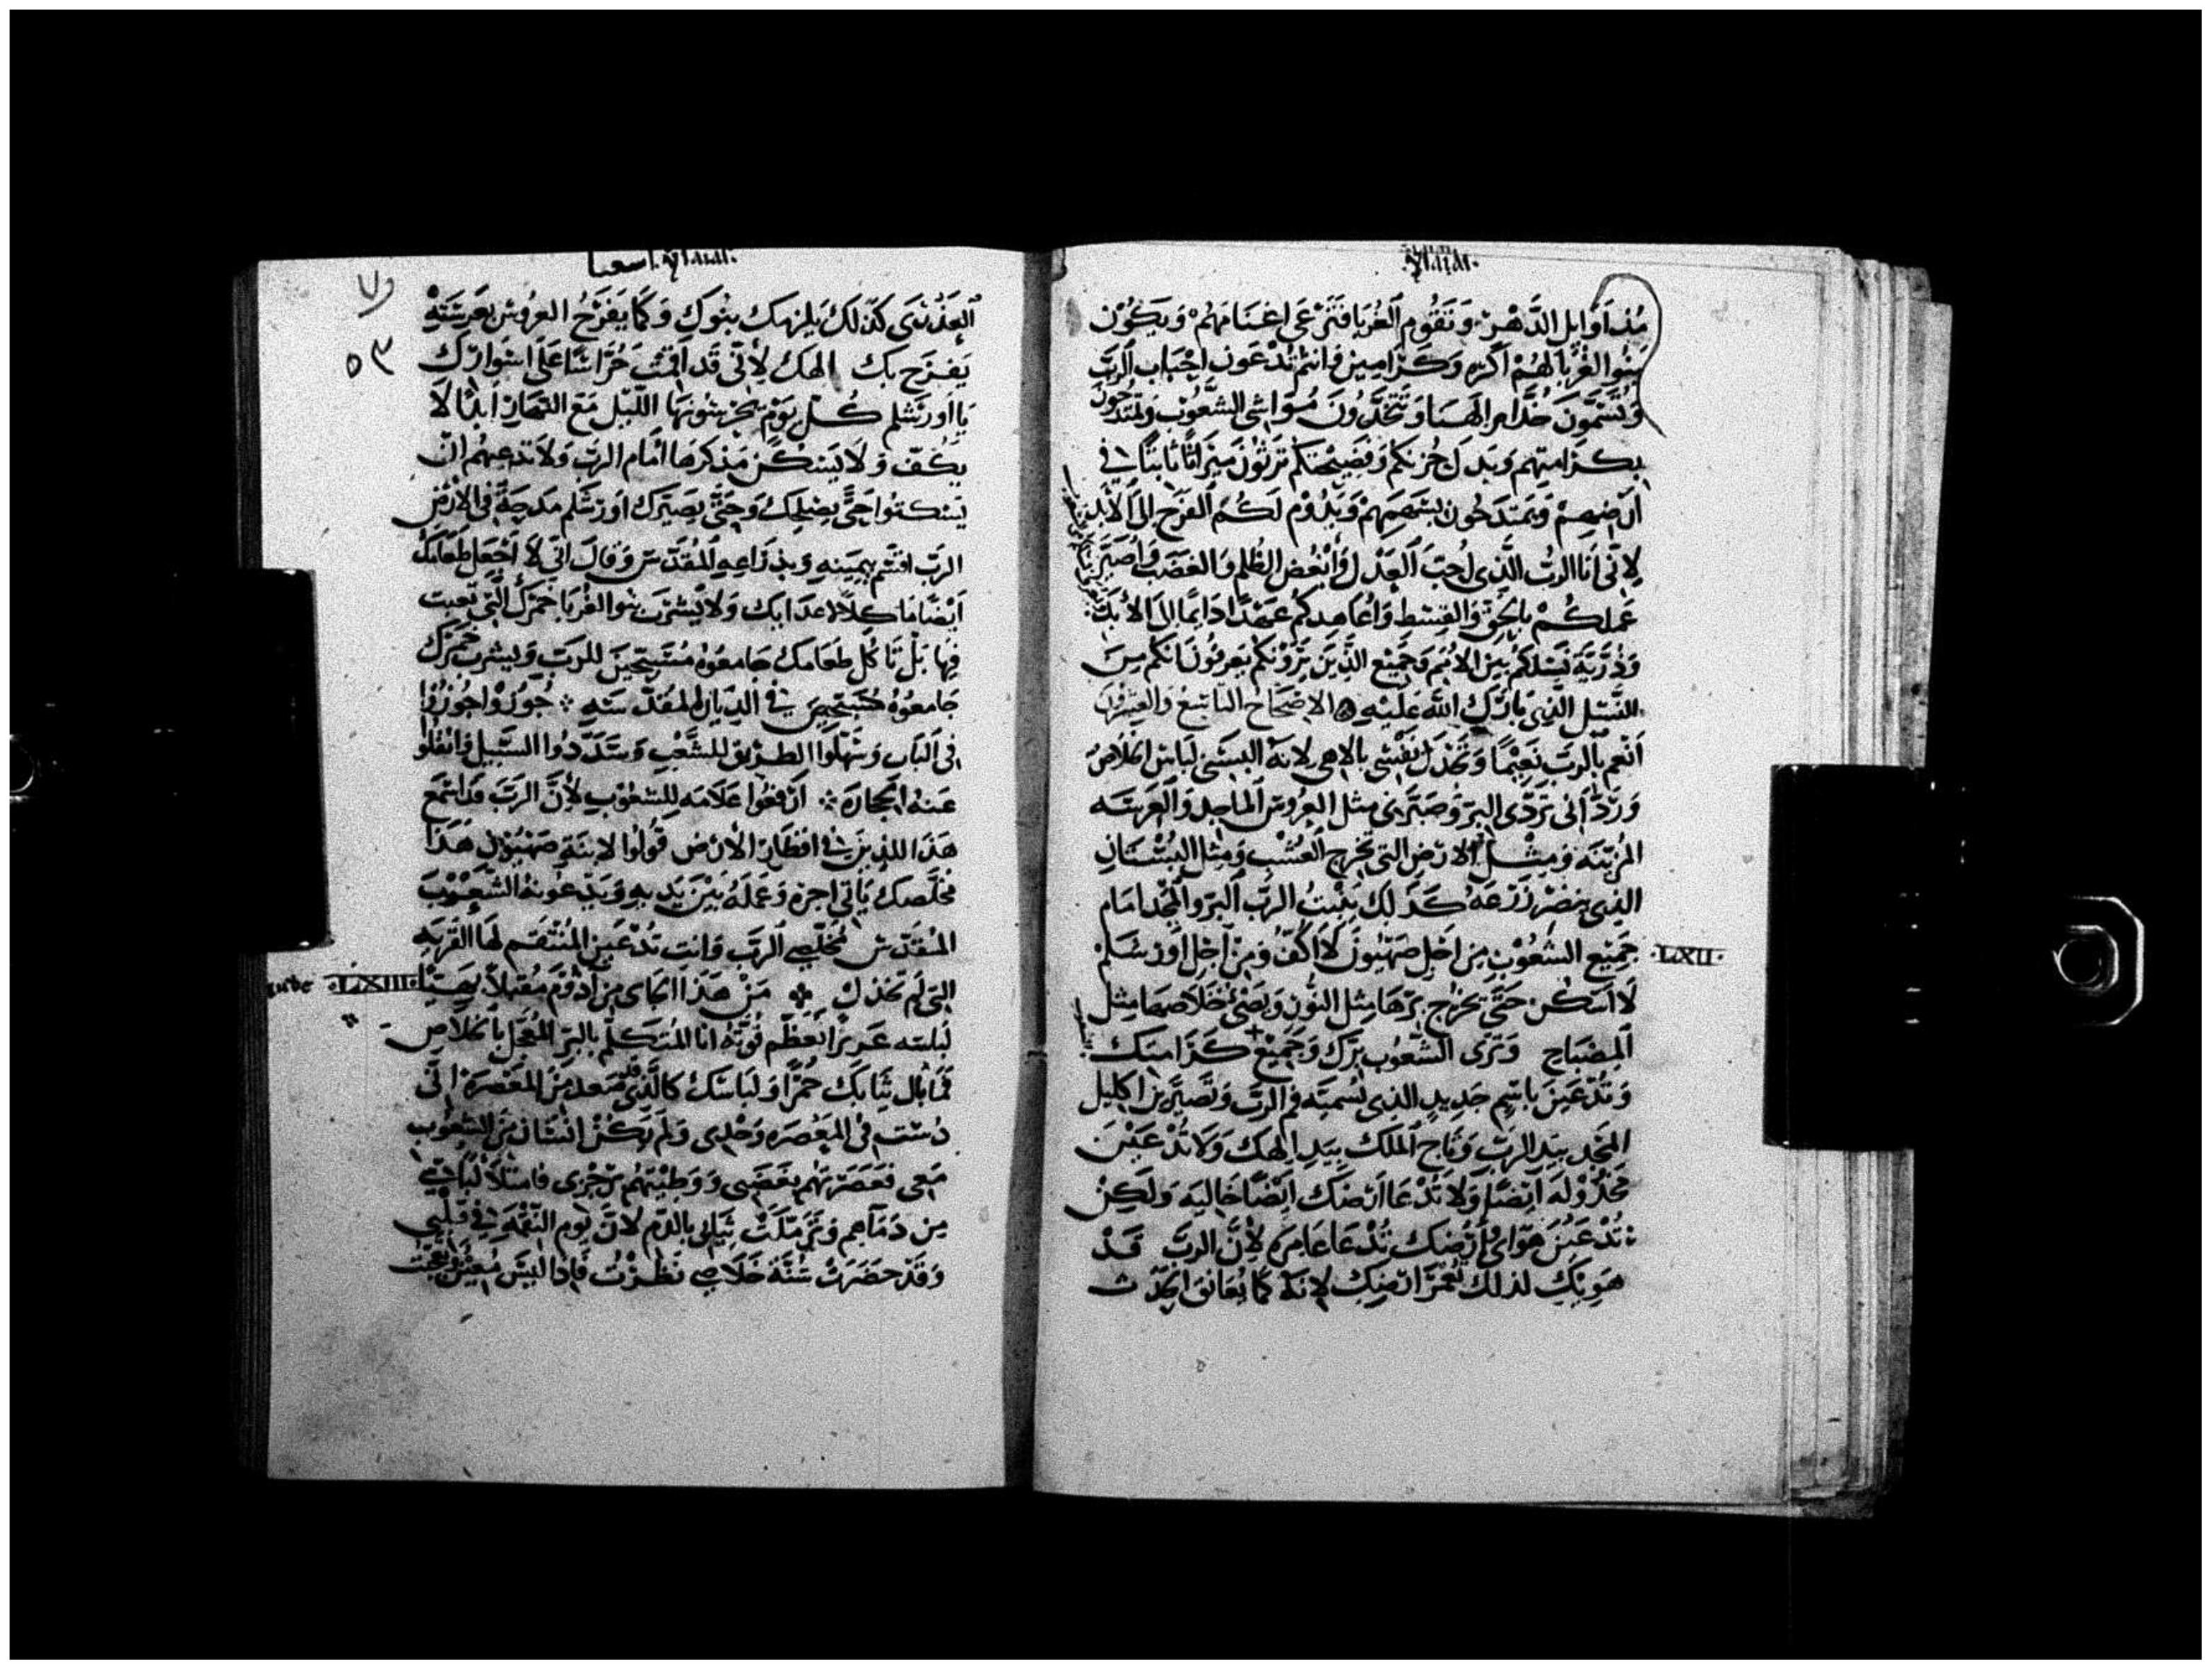 مُنذ اَوَايل الدَّهْر وَتَقُوم الغُرَبَا فَتَرْعَى اغنَامَهُمْ وَيَكُوْن
بنُوا الغُرَبَا لهُمْ اَكَره وَكرَّامِين فانتم تُدْعَون احبَاب الربّ
وَتُسَمَّونَ خدَّام الهَنا وَتَتَّخدُونَ مَوَاشي الشُعُوب وَتمتدحُون
بكرَامتهم وَبَدَل خُزنكم وَفضِيحتكم تَرثوُنَ مِيرَاثًا ثابتًا في
اَرْضِهِمْ وَيَمتَدحُون بسَهمِهمْ وَيَدُوْم لكُم الفَرَح الى الابد
لِانّي اَنا الربُّ الَّذي اُحِبّ العَدْل وَاُبْغُض الظُلم وَالغصَب وَاُصَيّر
عَملكُمْ بالحَقّ وَالقِسْط وَاُعَاهدكُم عَهْدًا دَايمًا الى الابد
وَذُرِّيَة نَسْلكمُ بين الاُمَم وَجَمِيْع الذِيَن يَرَوْنكم يَعرفُونَ انكم منَ
النَسْل الَّذي بَارَكَ الله عَليْهِ الاصْحَاح التاسع وَالعِشْرُون
اَنْعم بالربّ نَعِيْمًا وَتَجْذل نفْسي بالاهي لانهُ البسَني لبَاس الخلاص
وَرَدَّانى بردَى البرّ وَصَيَّرني مثل العروس الماجد وَالعَرُوسَه
المزيّنه وَمِثْل الارْضِ التي تخرج العُشْب وَمِثل البُسْتَانِ
الذِي ينضر زَرْعَهُ كَذَلك يَنْبتُ الربّ البرّ والمَجْد امَام
جَمِيْع الشعُوْب مِن اَجْل صَهْيُونَ لَا اكُفّ وَمِن آجل اوْرْشَلم
لَا اسْكن حَتَّى يخرج برّهَا مِثل النّور وَيضي خَلَاصها مِثل
المِصْبَاح وَتَرَى الشعُوب برّك وَجَمِيْع كَرَامتك
وَتُدْعَينَ باسْمٍ جَدِيدٍ الذي يُسَميّه فم الربّ وَتصِيَّرين اكليل
المَجد بيَد الربّ وَتاج الملك بيَد الهك وَلَا تدْعَيْنَ
مَخذُوْله اَيْضًا وَلَا تُدْعَا اَرضك ايْضًا خَاليَه وَلكن
تُدْعَيْنَ هَوَائي وَارْضك تُدْعَا عَامرَه لِانّ الربّ قَد
هَوِيَكِ لذلك تعمّر ارضك لِانهُ كما يُعَانق الحَدَث
.LXII.
اشعيا
٥٣
العَذْرَى كذَلك يلزمك بنُوكِ وَكما يَفرَح العروس بعَروسَتهِ
يَفرَح بك الهك لِانّي قَد اقمْت حُرَّاسًا عَلَى اسْوَارك
يا اورشلم كُلّ يَوْم يَحرسُونهَا اللّيل مَع النهَار اَبدًا لَا
يكفّ وَلَا يَسْكن مَذْكرهَا امَام الربّ وَلَا تدعهُم ان
يَسْكتوا حَتَّى يصْلحك وَحَتَّى يصَيّرك اورْشَلم مَدحَةً في الارْض
الربّ اقسَم بيَمينهِ وَبذرَاعهِ المُقدَّس وَقالَ اني لَا اجْعَل طعَامك
اَيْضًا مَا كلًا لاعدَايك وَلَا يَشرَبَ بنوا الغُرَبَا خَمرك التي تعبت
فيها بَل يَاكل طعَامك جَامعُوْهُ مُسَبّحينَ للربّ وَيشرب خمرك
جَامعُوْهُ مُسَبّحينَ في الديَار المقدَّسَه جُوزُوا جُوزُوا
في البَاب وَسَهّلوا الطريق للشَّعْب وَسَدّدُوا السَّبيل وَانقلُوا
عَنهُ الحجارَه ارْفعُوا عَلَامَه للشعُوب لِانَّ الربّ قد اسْمع
هَذا للذِينَ في اقطار الارْض قُولُوا لِابنَةِ صَهْيُوْن هَذا
مُخَلّصك يَاتي اجره وَعَملهُ بَيْنَ يَديهِ وَيَدْعُونهُ الشعُوْبَ
المُقدَّس مُخَلّصي الربّ وَانت تُدْعَين المُنْتَقم لهَا القَريَه
التي لَم تخذل مَنْ هَذا الجاي من ادوْم مُقبلًا بهيَّا
لبسَته عَزيزًا بعظم قوّته انا المُتكلّم بالبرّ المُعجل بالخلاص
فمَا بَال ثيَابك حُمرًا وَلبَاسك كالَّذي صَعد من المعْصرَه اني
دُسْت في المَعْصَره وَحْدي وَلَم يكُنْ انسَان من الشعُوب
مَعي فعَصَرتهم بغَضَبي وَوَطيْتهُم برجزي فامتلا لبَاسي
من دَمآهم وَترَمّلَتْ ثيَابي بالدم لِانّ يَوم النّقْمَه في قلبي
وَقَدْ حضَرَتْ سَنَة خَلَاصي نَظَرْتُ فَاِذا ليسَ مُعِيْن وَعَجبت
.LXIII.